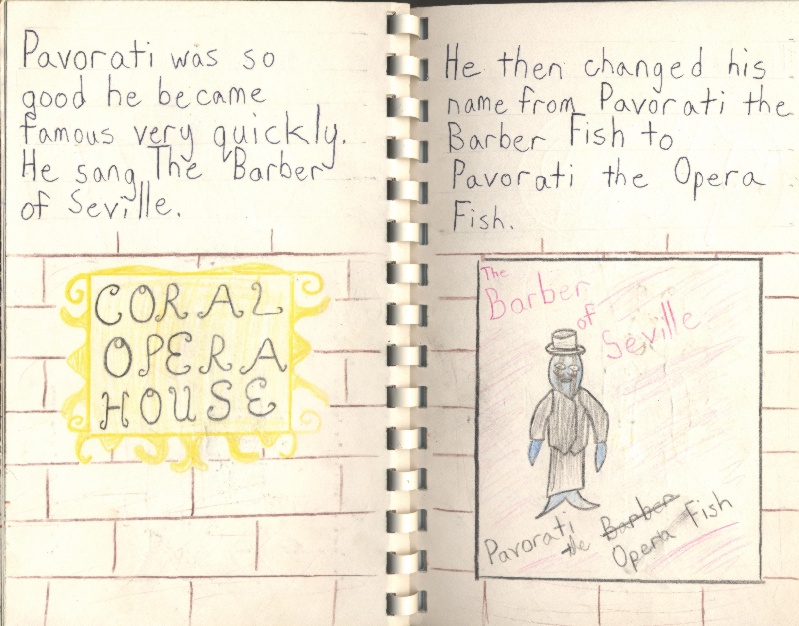 Pavorati was so
good he became
famous very quickly.
He sang The Barber
of Seville.
CORAL
OPERA
HOUSE
He then changed his
name from Pavorati the
Barber Fish to
Pavorati the Opera
Fish.
The
Barber
of
Seville
Pavorati
the Barber Fish
Opera